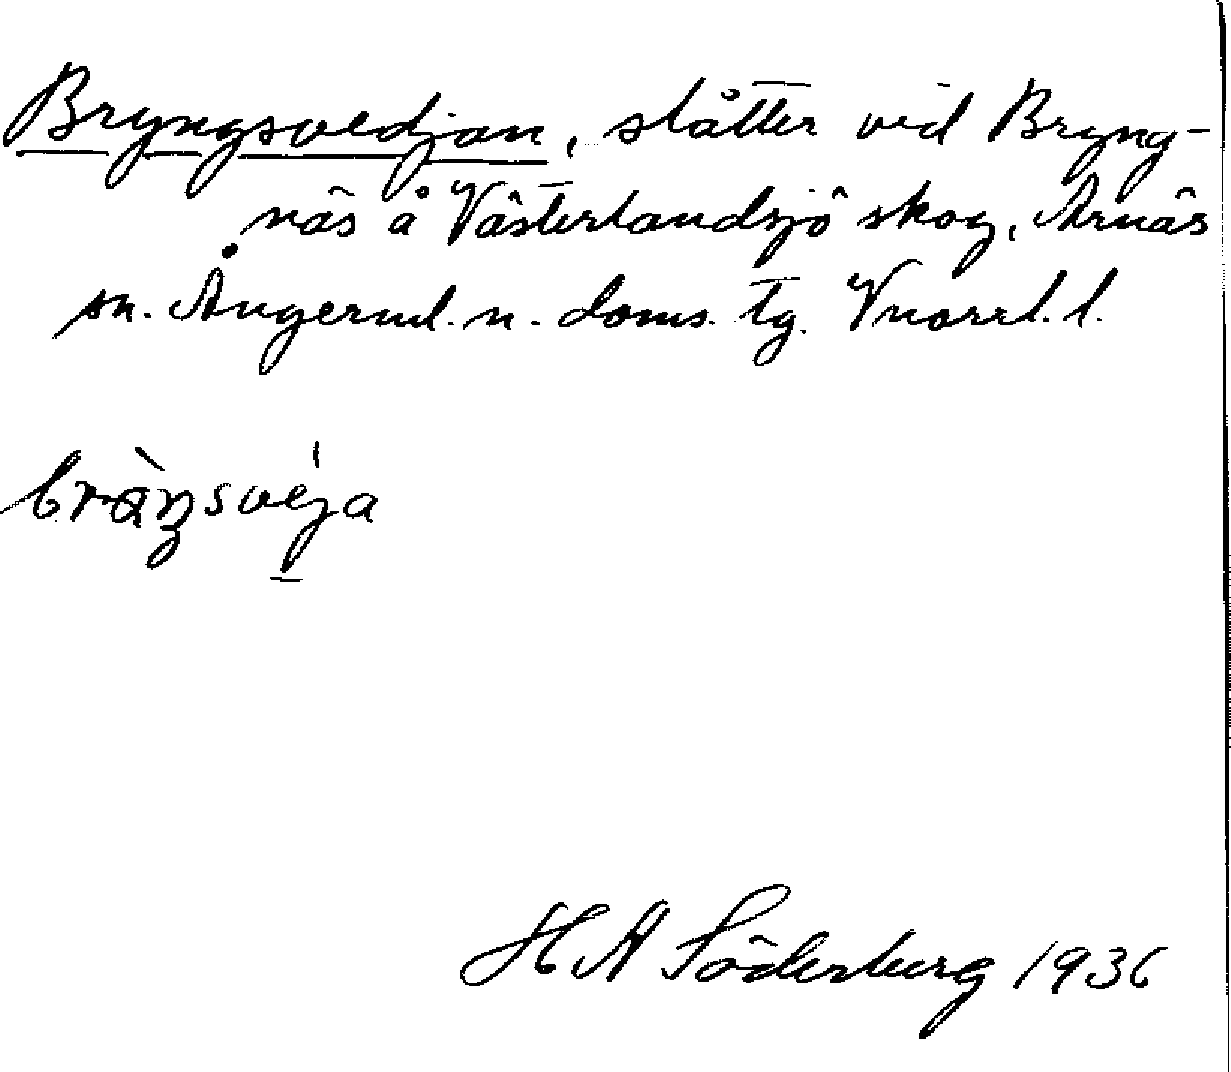 Bryngsvedjan, slåtter vid Bryng-
näs å Västerlandsjö skog, Arnäs
sn. Ångerml. n. doms. tg. Vnorrl. l.
H A Söderberg 1936